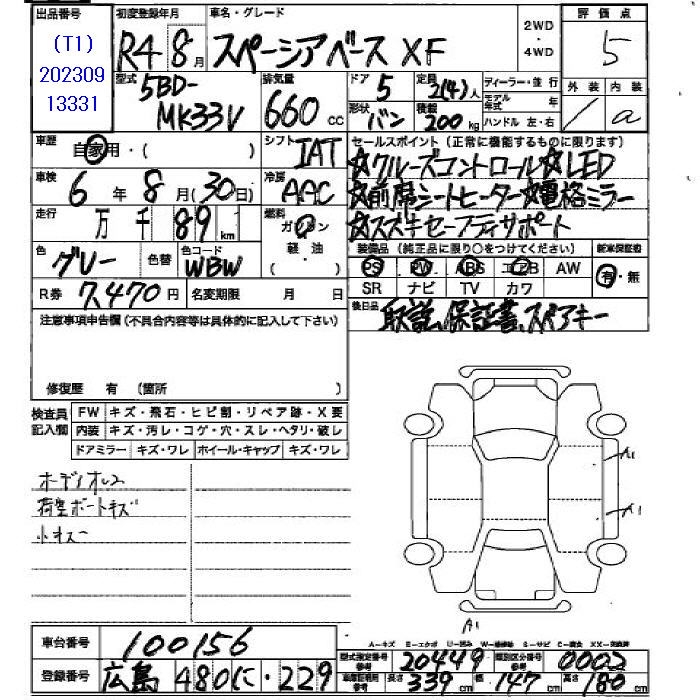 出品番号 初度登録年月 車名・グレード 2WD ・ 4WD 評価点
(T1) 202309 13331
R4 8月 スペーシアベース XF 5
型式 5BD-MK33V 排気量 660cc ドア 5 定員 2(4)人 ディーラー・並行 外装 内装
形状 バン 積載 200kg モデル年式 年 ハンドル 左・右 a
車歴 自家用・( ) シフト IAT セールスポイント (正常に機能するものに限ります)
☆クルーズコントロール☆LED
車検 6年 8月(30日) 冷房 AAC ☆前席シートヒーター☆電格ミラー
走行 万 千 89 km 燃料 ガソリン ・ 軽油 ( ) ☆スズキセーフティサポート
色 グレー 色替 色コード WBW 装備品 (純正品に限り〇をつけてください) 新車保証書
PS PW ABS エアB AW 有・無
SR ナビ TV カワ
R券 7,470円 名変期限 月 日
後日品 取説、保証書、スペアキー
注意事項申告欄 (不具合内容等は具体的に記入して下さい)
修復歴 有 (箇所 )
検査員記入欄 FW キズ・飛石・ヒビ割・リペア跡・X要
内装 キズ・汚レ・コゲ・穴・スレ・ヘタリ・破レ
ドアミラー キズ・ワレ ホイール・キャップ キズ・ワレ
A1
A1
A1
車台番号 100156
A-キズ E-エクボ
型式指定番号 参考 20449 類別区分番号 参考 0002
登録番号 広島 480に・229
長さ 339cm 幅 147cm 高さ 180cm